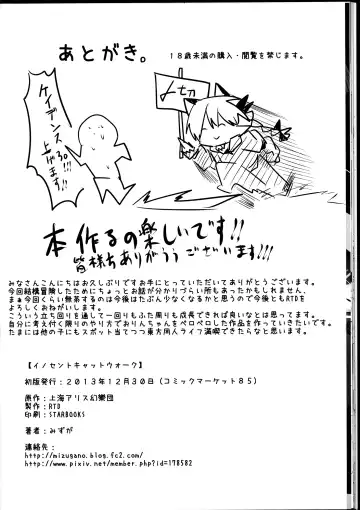 あとがき。
18歳未満の購入・閲覧を禁じます。
〆切
ケイデンス
上げろ!!!
上げます!!
本作るの楽しいです!!
皆様ありがとうございます!!!
みなさんこんにちはお久しぶりですお手にとっていただいてありがとうございます。
今回結構冒険したためにちょっとお話が分かりづらい所もあったかもしれません、
まぁ今回くらい無茶するのは今後はたぶん少なくなるかと思うので今後ともRTDを
よろしくおねがいします。
こういう立ち回りを通して一回りもふた周りも成長できれば良いなとは思ってます。
自分に考え付く限りのやり方でおりんちゃんをペロペロした作品を作っていきたいです。
たまには他の子にもスポット当てつつ東方同人ライフ満喫できたらなと思います。
【イノセントキャットウォーク】
初版発行:2013年12月30日(コミックマーケット85)
原作:上海アリス幻樂団
製作:RTD
印刷:STARBOOKS
著者:みずが
連絡先:
http://mizugano.blog.fc2.com/
http://www.pixiv.net/member.php?id=178582